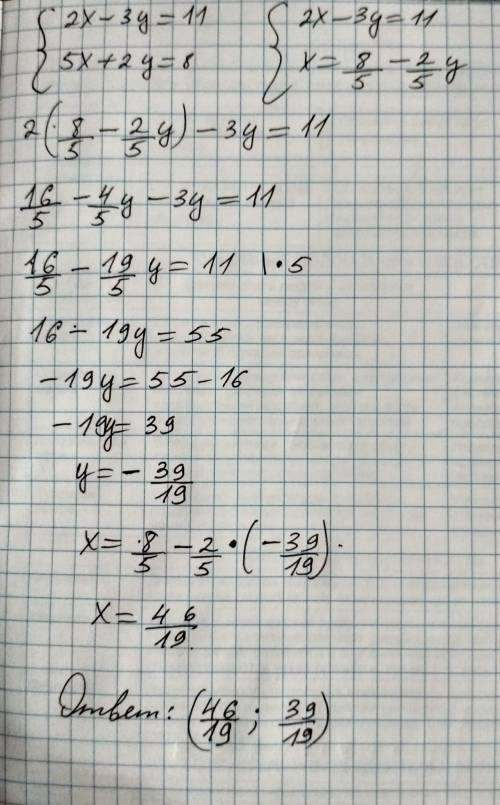 { 2x - 3y = 11    { 2x - 3y = 11
{ 5x + 2y = 8    { x = 8/5 - 2/5 y
2(8/5 - 2/5 y) - 3y = 11
16/5 - 4/5 y - 3y = 11
16/5 - 19/5 y = 11 | • 5
16 - 19y = 55
-19y = 55 - 16
-19y = 39
y = - 39/19
x = 8/5 - 2/5 • (- 39/19).
x = 46/19.
Ответ: (46/19 ; 39/19)